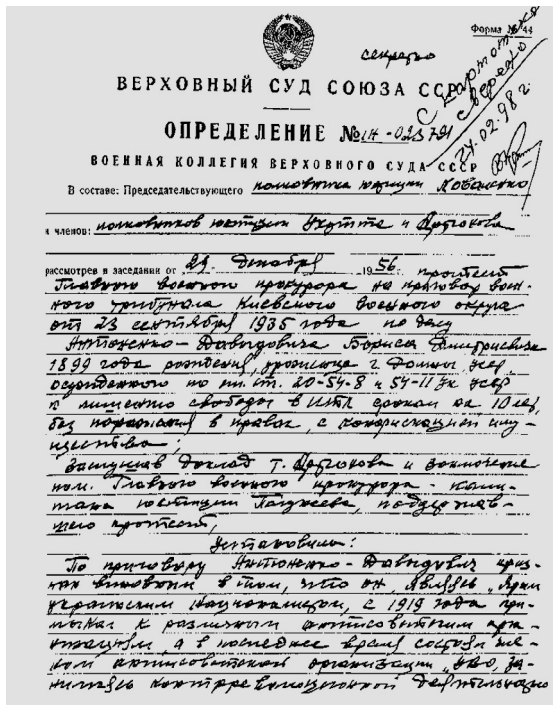 Форма № 44
секретно
С картотекой
сверено
24.02.98 г
ВЕРХОВНЫЙ СУД СОЮЗА ССР
ОПРЕДЕЛЕНИЕ №
ВОЕННАЯ КОЛЛЕГИЯ ВЕРХОВНОГО СУДА СССР
В составе: Председательствующего полковника юстиции Коваленко
и членов: полковников юстиции и Артюкова
рассмотрев в заседании от 29 декабря 1956 г. протест
Главного военного прокурора на приговор воен-
ного трибунала Киевского военного округа
от 23 сентября 1935 года по делу
Антоненко-Давыдовича Бориса Дмитриевича
1899 года рождения, уроженца г. Ромны, УССР,
осужденного по ст. ст. 20-54-8 и 54-11 УК УССР
к лишению свободы в ИТЛ сроком на 10 лет,
без поражения в правах, с конфискацией иму-
щества;
Заслушав доклад т. Артюкова и заключение
пом. Главного военного прокурора - капи-
тана юстиции поддержав-
шего протест,
Установила:
По приговору Антоненко-Давыдович приз-
нан виновным в том, что он, являясь ярым
украинским националистом, с 1919 года при-
мыкал к различным антисоветским орга-
низациям, а в последнее время состоял чле-
ном антисоветской организации „УВО", за-
нимаясь контрреволюционной деятельностью